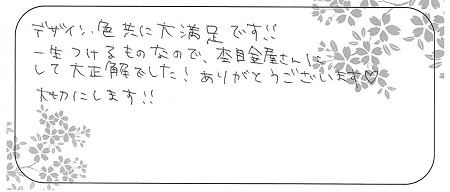 デザイン、色共に大満足です!!
一生つけるものなので、杢目金屋さんに
して大正解でした！ありがとうございます♡
大切にします!!